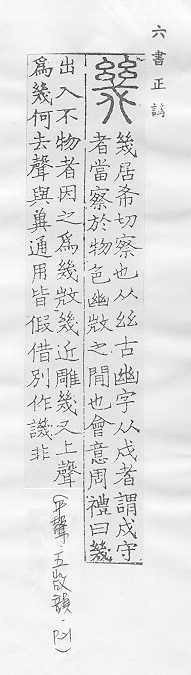 六書正譌
幾居希切察也从𢆶古幽字从戍者謂戍守
者當察於物色幽微之閒也會意周禮曰幾
出入不物者因之爲幾微幾近雕幾又上聲
爲幾何去聲與冀通用皆假借別作譏非
(平聲五微韻.P21)